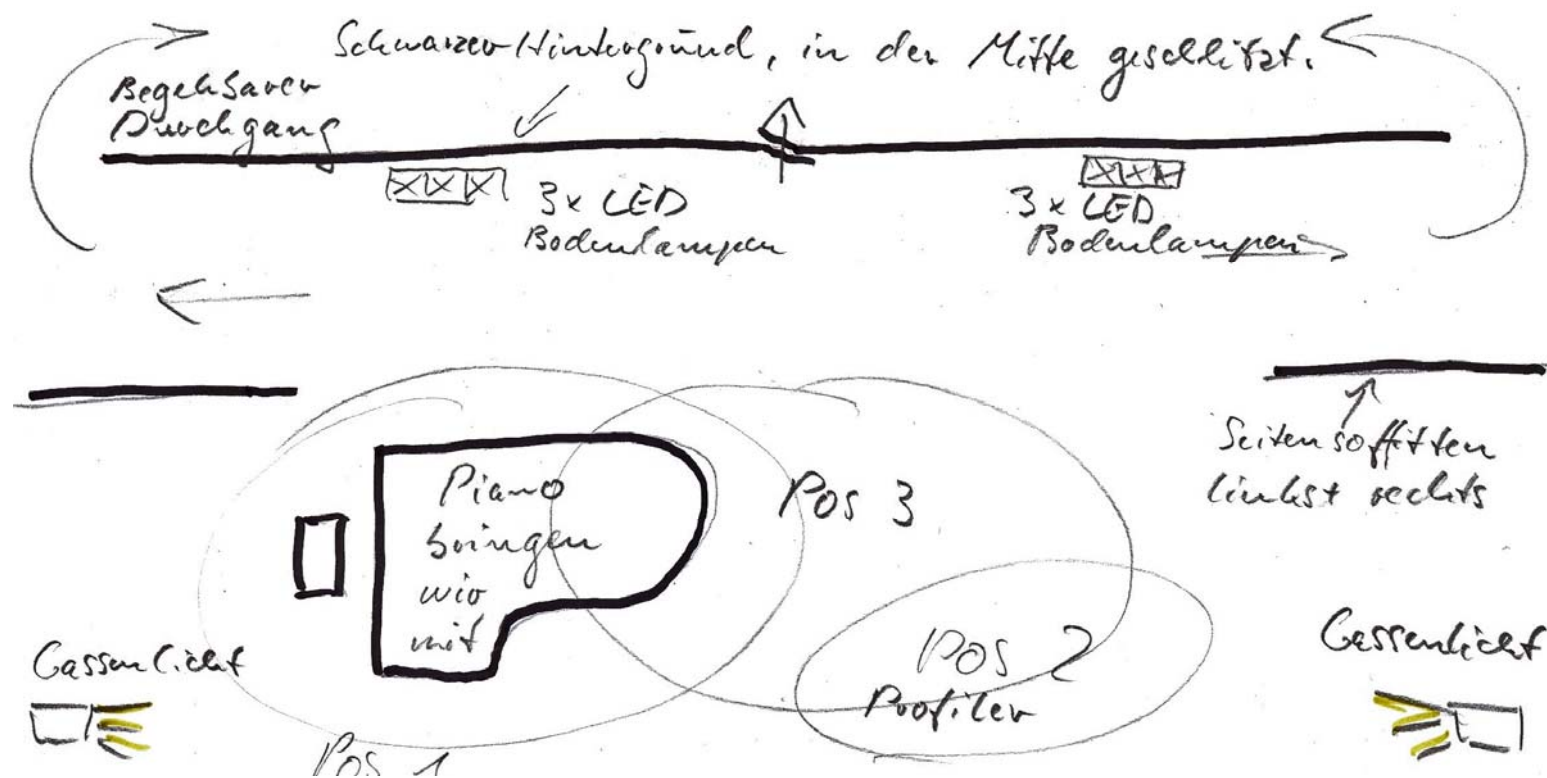 Schwarzer Hintergrund, in der Mitte geschlitzt.
Begehbarer
Durchgang
3x LED
Bodenlampen
3x LED
Bodenlampen
Seitensoffitten
links + rechts
Piano
bringen
wir
mit
Pos 3
Pos 2
Profiler
Gassenlicht
Gassenlicht
Pos 1